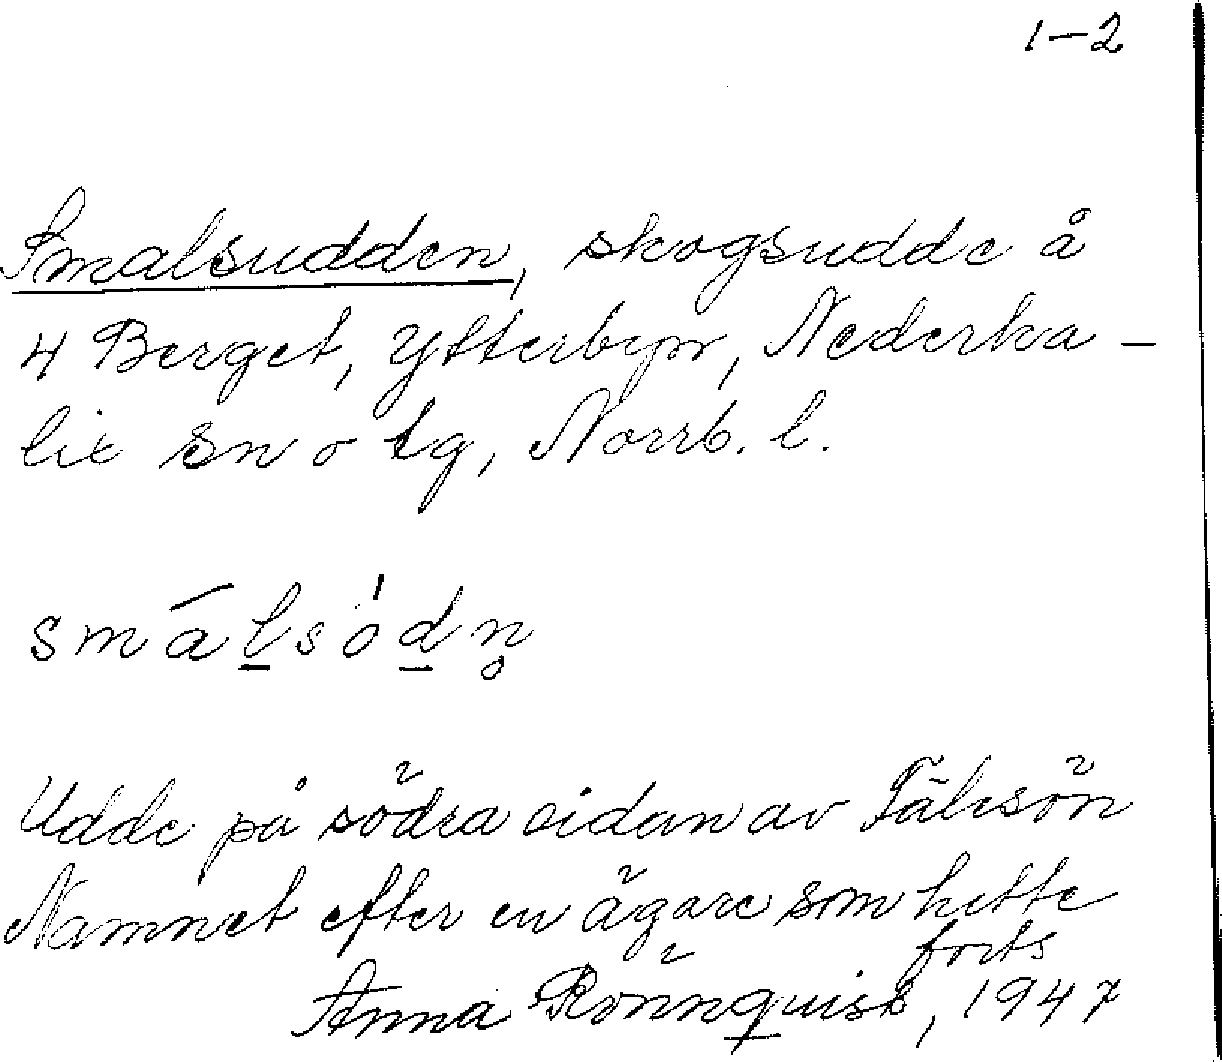 1-2
Smalsudden, skogsudde å
4 Berget, Ytterbyn, Nederka-
lix sn o tg, Norrb. l.
smālsódn̥
Udde på södra sidan av
Namnet efter en ägare som hette
forts
Anna Rönnquist, 1947